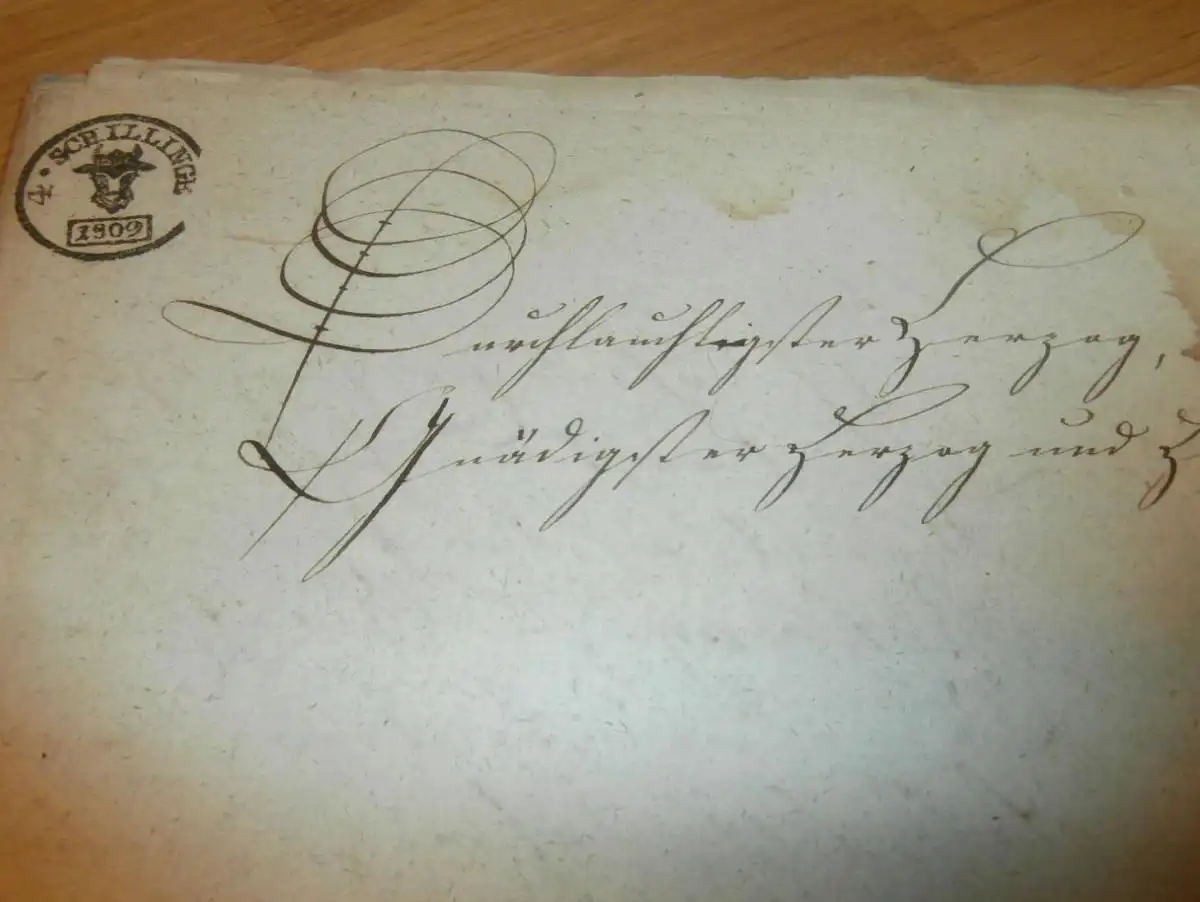 4 • SCHILLINGE
1809
Durchlauchtigster Herzog,
Gnädigster Herzog und H